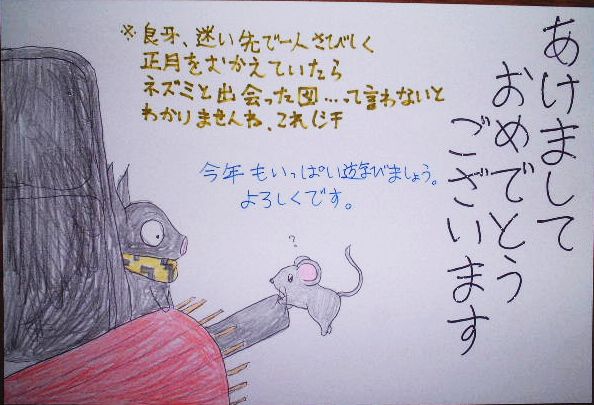 あけまして
おめでとう
ございます
※良牙、迷い先で一人さびしく
正月をむかえていたら
ネズミと出会った図…って言わないと
わかりませんね、これ(汗
今年もいっぱい遊びましょう。
よろしくです。
?